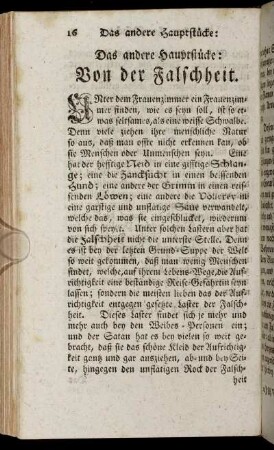 16 Das andere Hauptstücke:
Das andere Hauptstücke:
Von der Falschheit.
UNter dem Frauenzimmer ein Frauenzim-
mer finden, wie es seyn soll, ist so et-
was seltsames, als eine weisse Schwalbe.
Denn viele ziehen ihre menschliche Natur
so aus, daß man offte nicht erkennen kan, ob
sie Menschen oder Unmenschen seyn. Eine
hat der hefftige Neid in eine gifftige Schlan-
ge; eine die Zancksucht in einen beissenden
Hund; eine andere der Grimm in einen reis-
senden Löwen; eine andere die Völlerey in
eine garstige und unflätige Saue verwandelt,
welche das, was sie eingeschlucket, wiederum
von sich speyet. Unter solchen Lastern aber hat
die Falschheit nicht die unterste Stelle. Denn
es ist bey der letzten Grund-Suppe der Welt
so weit gekommen, daß man wenig Menschen
findet, welche, auf ihrem Lebens-Wege, die Auf-
richtigkeit eine beständige Reise-Gefährtin seyn
lassen; sondern die meisten lieben das der Auff-
richtigkeit entgegen gesetzte Laster der Falsch-
heit. Dieses Laster findet sich je mehr und
mehr auch bey den Weibes-Personen ein;
und der Satan hat es bey vielen so weit ge-
bracht, daß sie das schöne Kleid der Aufrichtig-
keit ganz und gar ausziehen, ab- und bey Sei-
te, hingegen den unflätigen Rock der Falsch-
heit